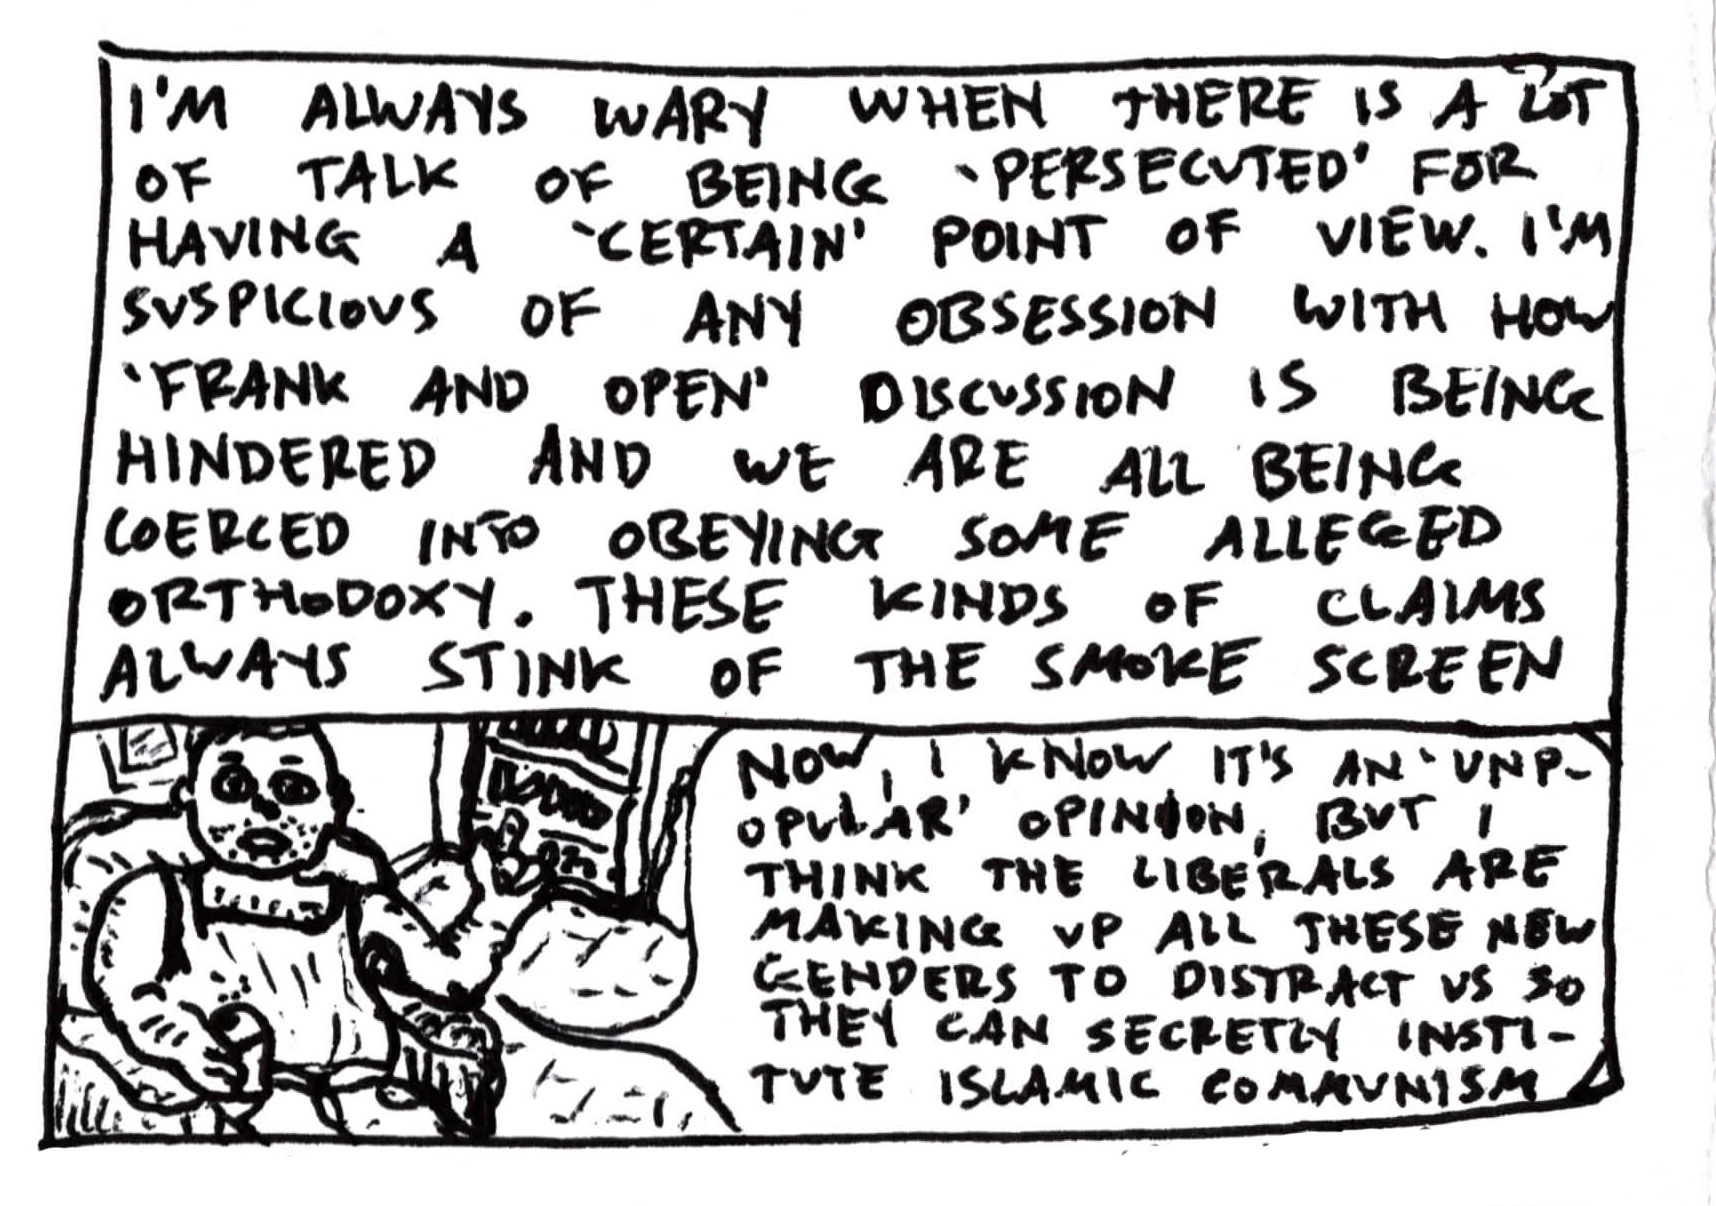 I'M ALWAYS WARY WHEN THERE IS A LOT
OF TALK OF BEING 'PERSECUTED' FOR
HAVING A 'CERTAIN' POINT OF VIEW. I'M
SUSPICIOUS OF ANY OBSESSION WITH HOW
'FRANK AND OPEN' DISCUSSION IS BEING
HINDERED AND WE ARE ALL BEING
COERCED INTO OBEYING SOME ALLEGED
ORTHODOXY. THESE KINDS OF CLAIMS
ALWAYS STINK OF THE SMOKE SCREEN
NOW, I KNOW IT'S AN 'UNP-
OPULAR' OPINION, BUT I
THINK THE LIBERALS ARE
MAKING UP ALL THESE NEW
GENDERS TO DISTRACT US SO
THEY CAN SECRETLY INSTI-
TUTE ISLAMIC COMMUNISM